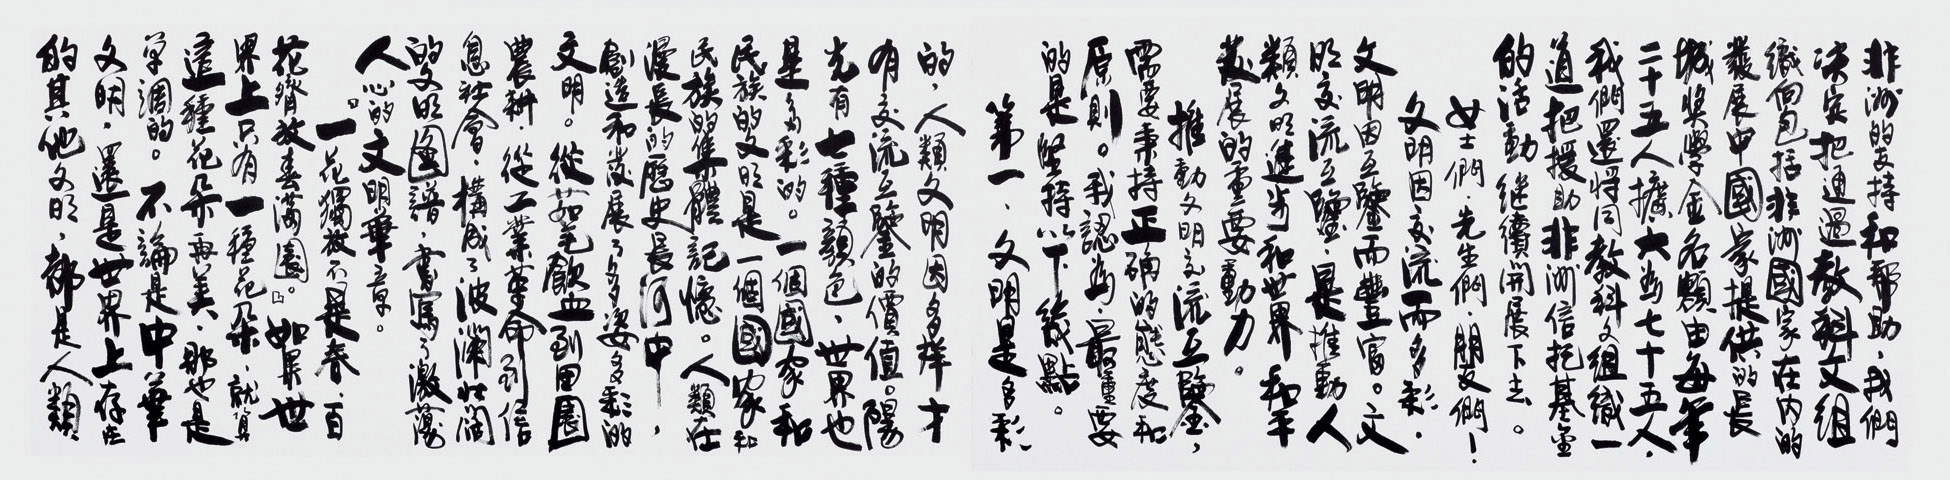 非洲的支持和帮助,我們
决定把通過教科文組
織向包括非洲國家在内的
發展中國家提供的長
城奬學金名額由每年
二十五人擴大為七十五人,
我們還将同教科文組織一
道把援助非洲信托基金
的活動继續開展下去。
女士們、先生們、朋友們!
文明因交流而多彩,
文明因互鑒而豐富。文
明交流互鑒,是推動人
類文明進步和世界和平
發展的重要動力。
推動文明交流互鑒,
需要秉持正确的態度和
原則。我認為,最重要
的是堅持以下幾點。
第一,文明是多彩
的,人類文明因多样才
有交流互鑒的價值。陽
光有七種顔色,世界也
是多彩的。一個國家和
民族的文明是一個國家和
民族的集體記憶。人類在
漫長的歷史長河中,
創造和發展了多姿多彩的
文明。從茹毛飲血到田園
農耕,從工業革命到信
息社會,構成了波瀾壯闊
的文明圖譜,書寫了激蕩
人心的文明華章。
“一花獨放不是春,百
花齊放春滿園。”如果世
界上只有一種花朵,就算
這種花朵再美,那也是
单調的。不論是中華
文明,還是世界上存在
的其他文明,都是人類